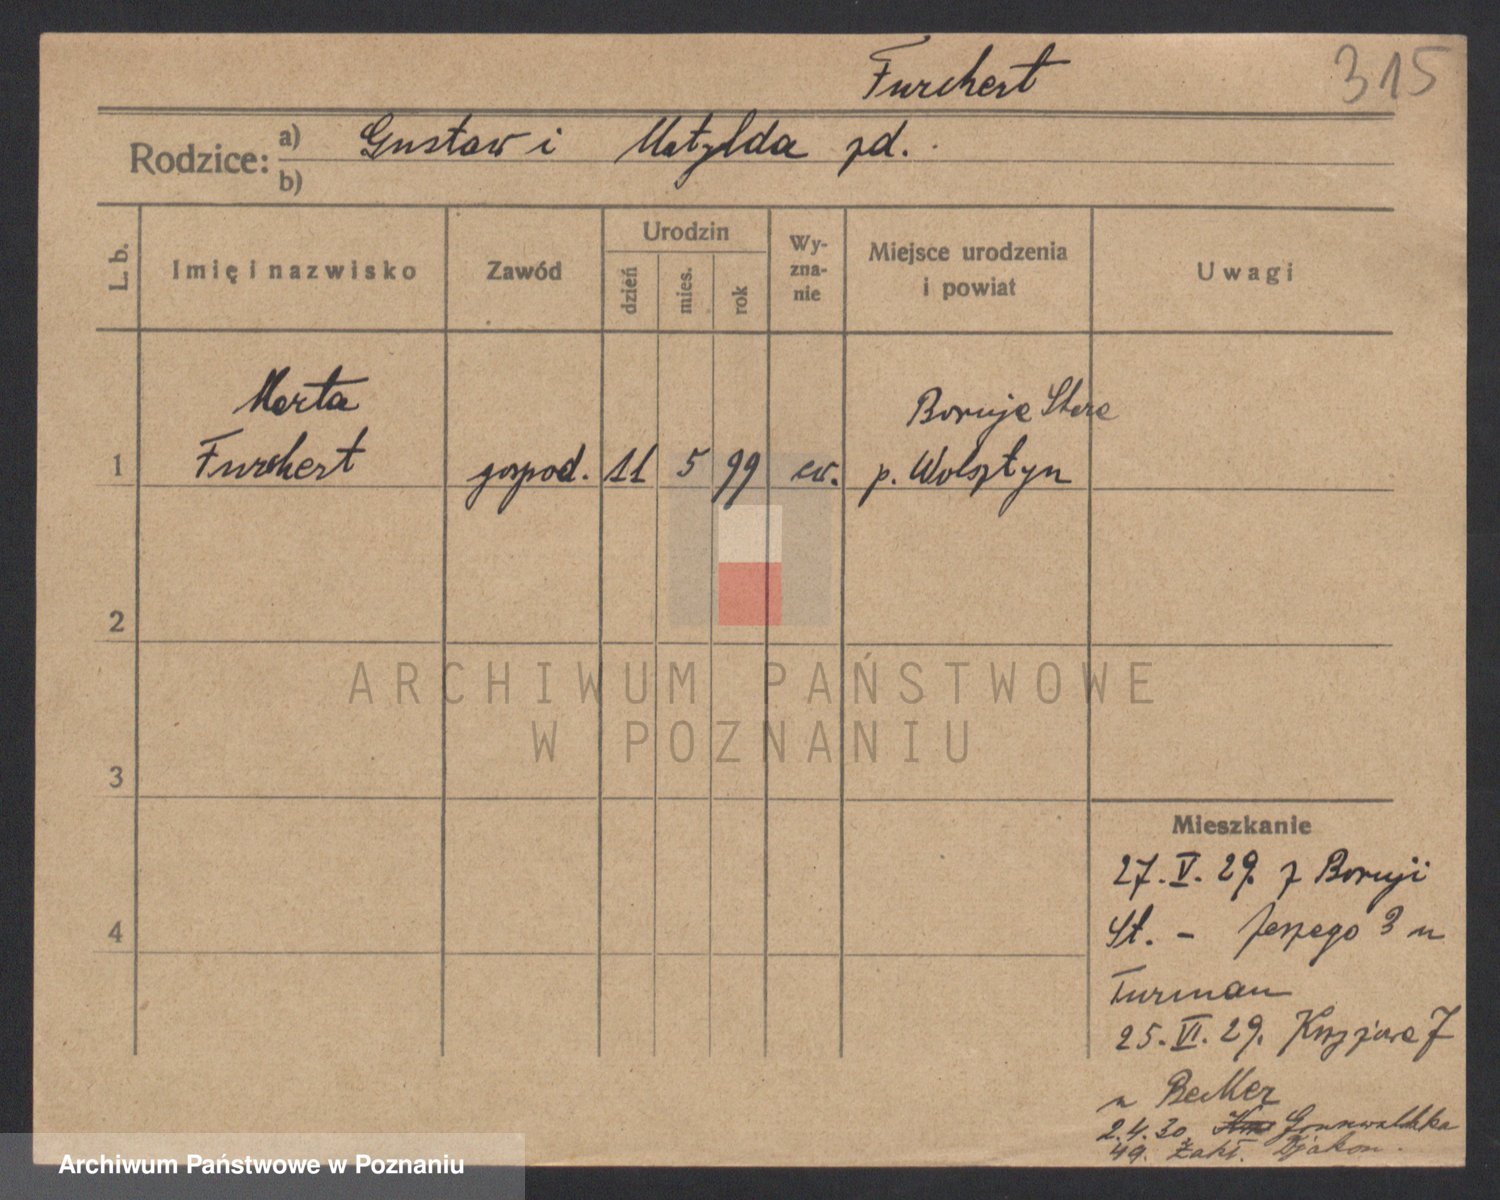 Furchert
315
Rodzice: a) Gustaw i Matylda zd.
b)
L. b.
Imię i nazwisko
Zawód
Urodzin
dzień
mies.
rok
Wy-
zna-
nie
Miejsce urodzenia
i powiat
Uwagi
Marta
Boruja Stara
1 Furchert gospod. 11 5 99 ew. p. Wolsztyn
2
ARCHIWUM PAŃSTWOWE
W POZNANIU
3
4
Mieszkanie
27. V. 29. z Boruji
St. - 3 u
Furman
25. VI. 29. Krzyżowa 7
u Becker
2.4.30. Grunwaldzka
49. Zakł. Djakon.
Archiwum Państwowe w Poznaniu